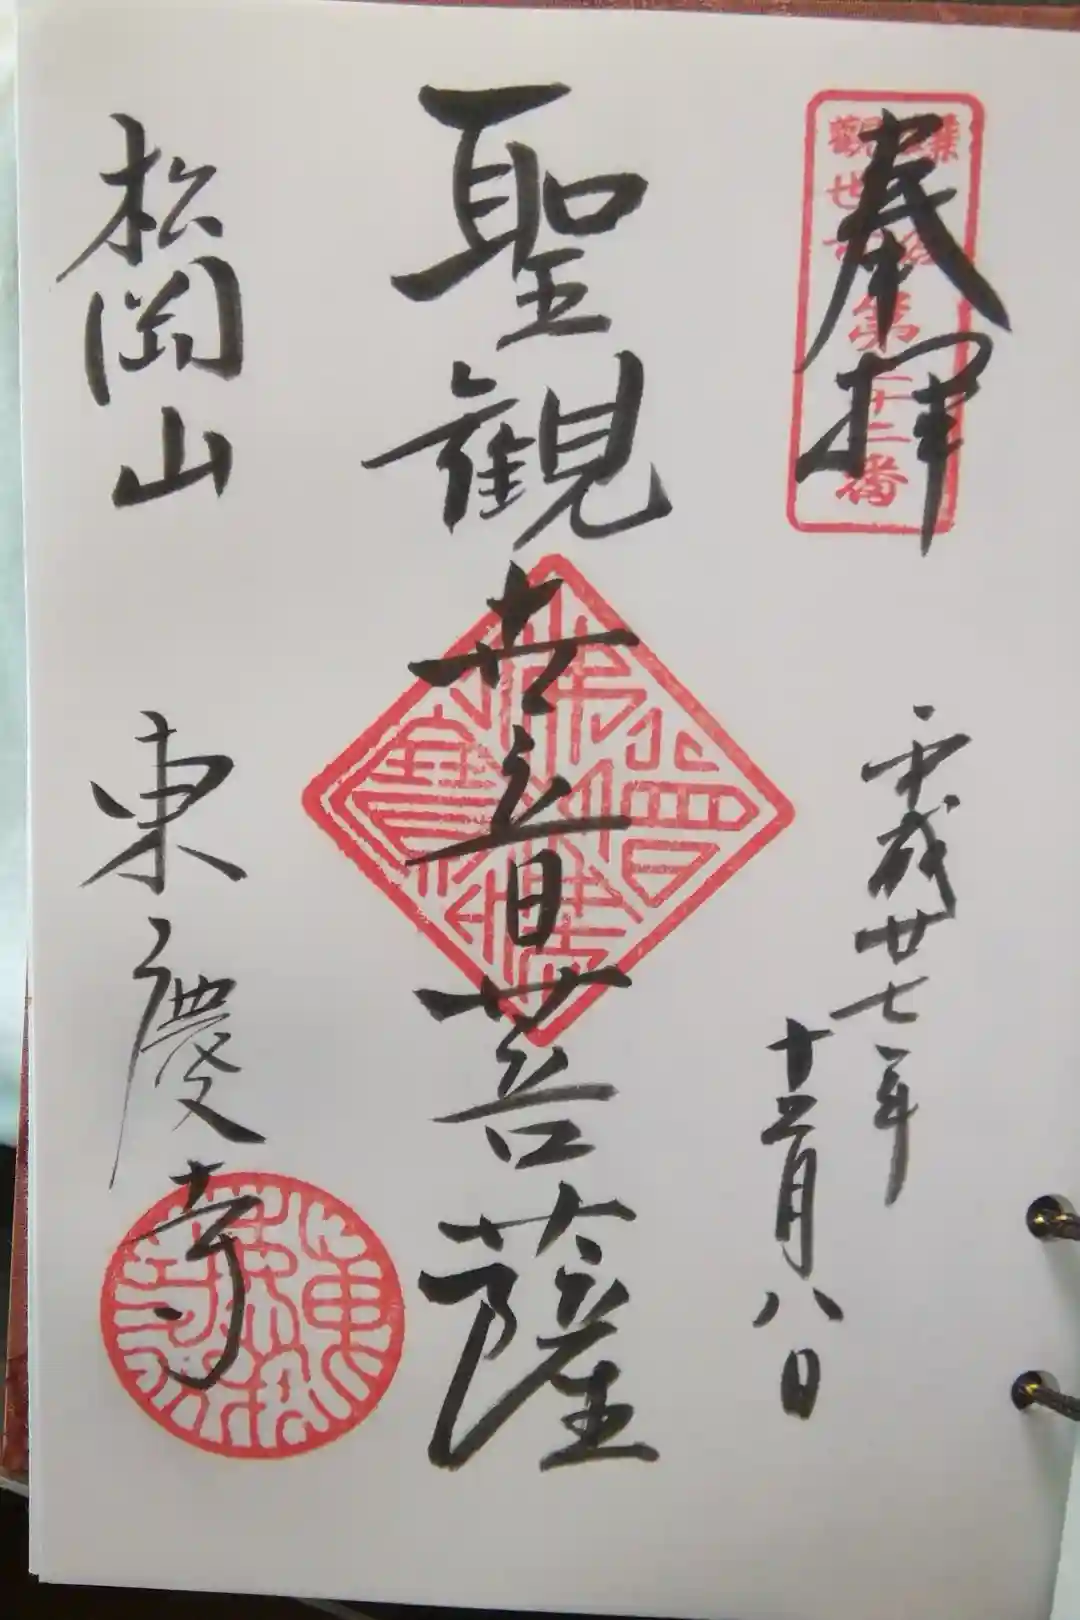 奉拝
第三十二番
平成廿七年
十二月八日
聖観世音菩薩
佛法僧寶
松岡山
東慶寺